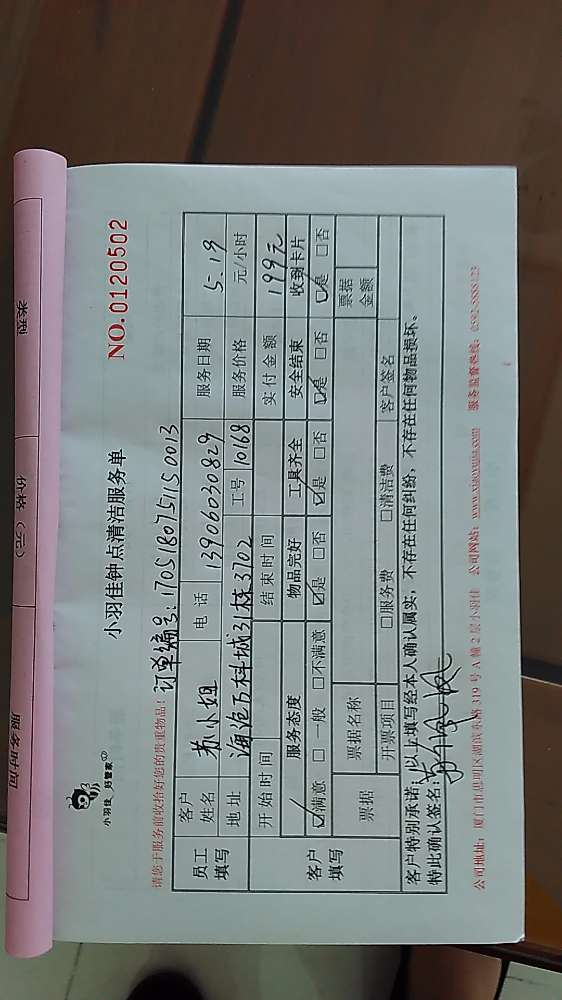 类型
价格（元）
服务时间
小羽佳 好管家
小羽佳钟点清洁服务单
NO.0120502
请您于服务前收拾好您的贵重物品！订单编号：1705180751150013
员工填写
客户姓名 苏小姐 电话 13906030829 服务日期 5.19
地址 海沧万科城31栋3702 工号 10168 服务价格 元/小时
客户填写
开始时间 结束时间 实付金额 199元
服务态度 物品完好 工具齐全 安全结束 收到卡片
☑满意 □一般 □不满意 ☑是 □否 ☑是 □否 ☑是 □否 ☑是 □否
票据 票据名称 票据金额
开票项目 □服务费 □清洁费 客户签名
客户特别承诺：以上填写经本人确认属实，不存在任何纠纷，不存在任何物品损坏。
特此确认签名：
公司地址：厦门市思明区湖滨东路319号A幢2层小羽佳 公司网站：www.xiaoyujia.com 服务监督热线：0592-5888123